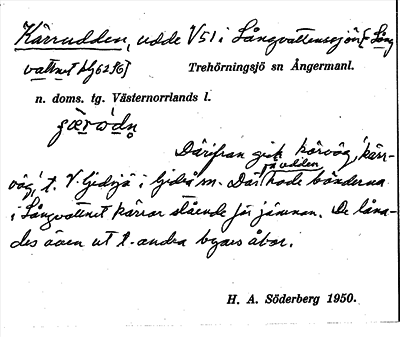 Kärrudden, udde V51 i Långvattenssjön [= Lång
vattnet blg62f6]
Trehörningsjö sn Ångermanl.
n. doms. tg. Västernorrlands l.
Därifrån gick körväg, 'kärr-
på udden
väg', t. V. Gideå m. Där hade bönderna
i Långvattnet kärror stående för järnman. De låna-
des även ut t. andra byars åbor.
H. A. Söderberg 1950.